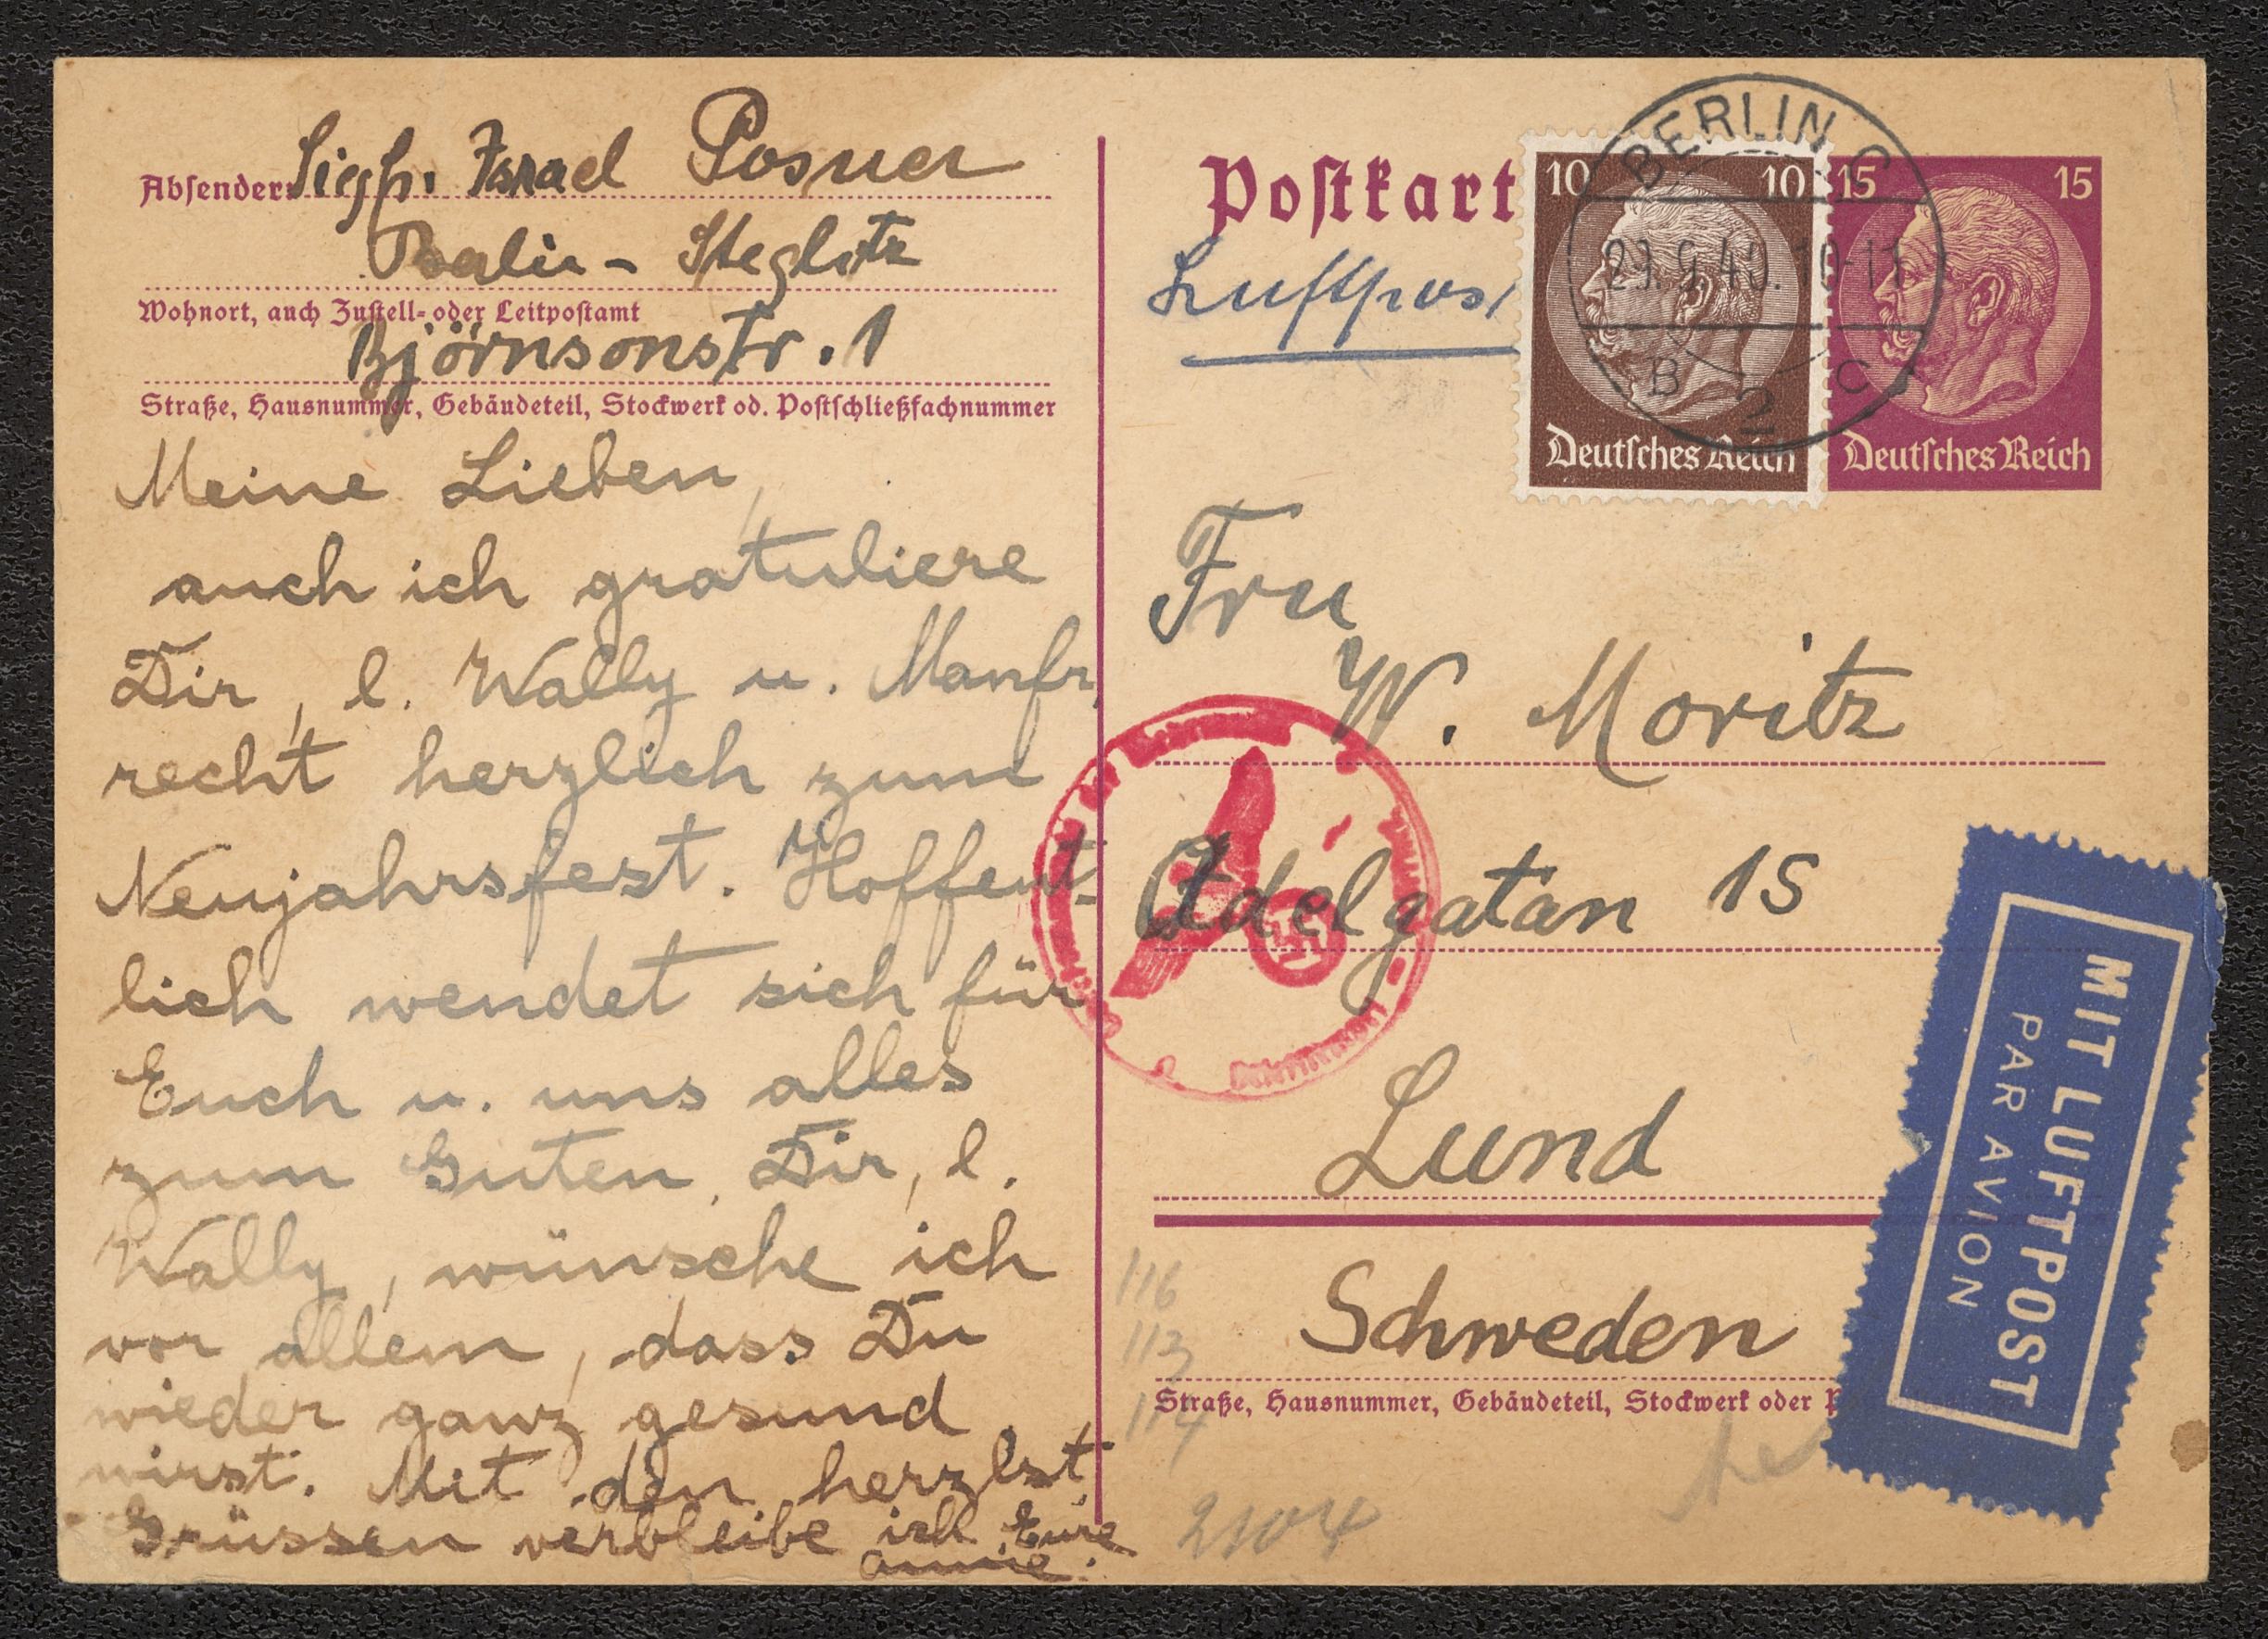 Absender: Siegfr. Israel Posner
Berlin - Steglitz
Wohnort, auch Zustell- oder Leitpostamt
Björnsonstr. 1
Straße, Hausnummer, Gebäudeteil, Stockwerk od. Postschließfachnummer
Meine Lieben,
auch ich gratuliere
Dir, l. Wally u. Manfr.
recht herzlich zum
Neujahrsfest. Hoffent-
lich wendet sich für
Euch u. uns alles
zum Guten. Dir, l.
Wally, wünsche ich
vor allem, dass Du
wieder ganz gesund
wirst. Mit den herzlst.
Grüssen verbleibe ich Eure
Annie.
Postkart
Luftpost
10 10
Deutsches Reich
15 15
Deutsches Reich
BERLIN C
10-11
B C
2
Fru
W. Moritz
Adelgatan 15
Lund
Schweden
Straße, Hausnummer, Gebäudeteil, Stockwerk oder P
MIT LUFTPOST
PAR AVION
116
113
114
2104